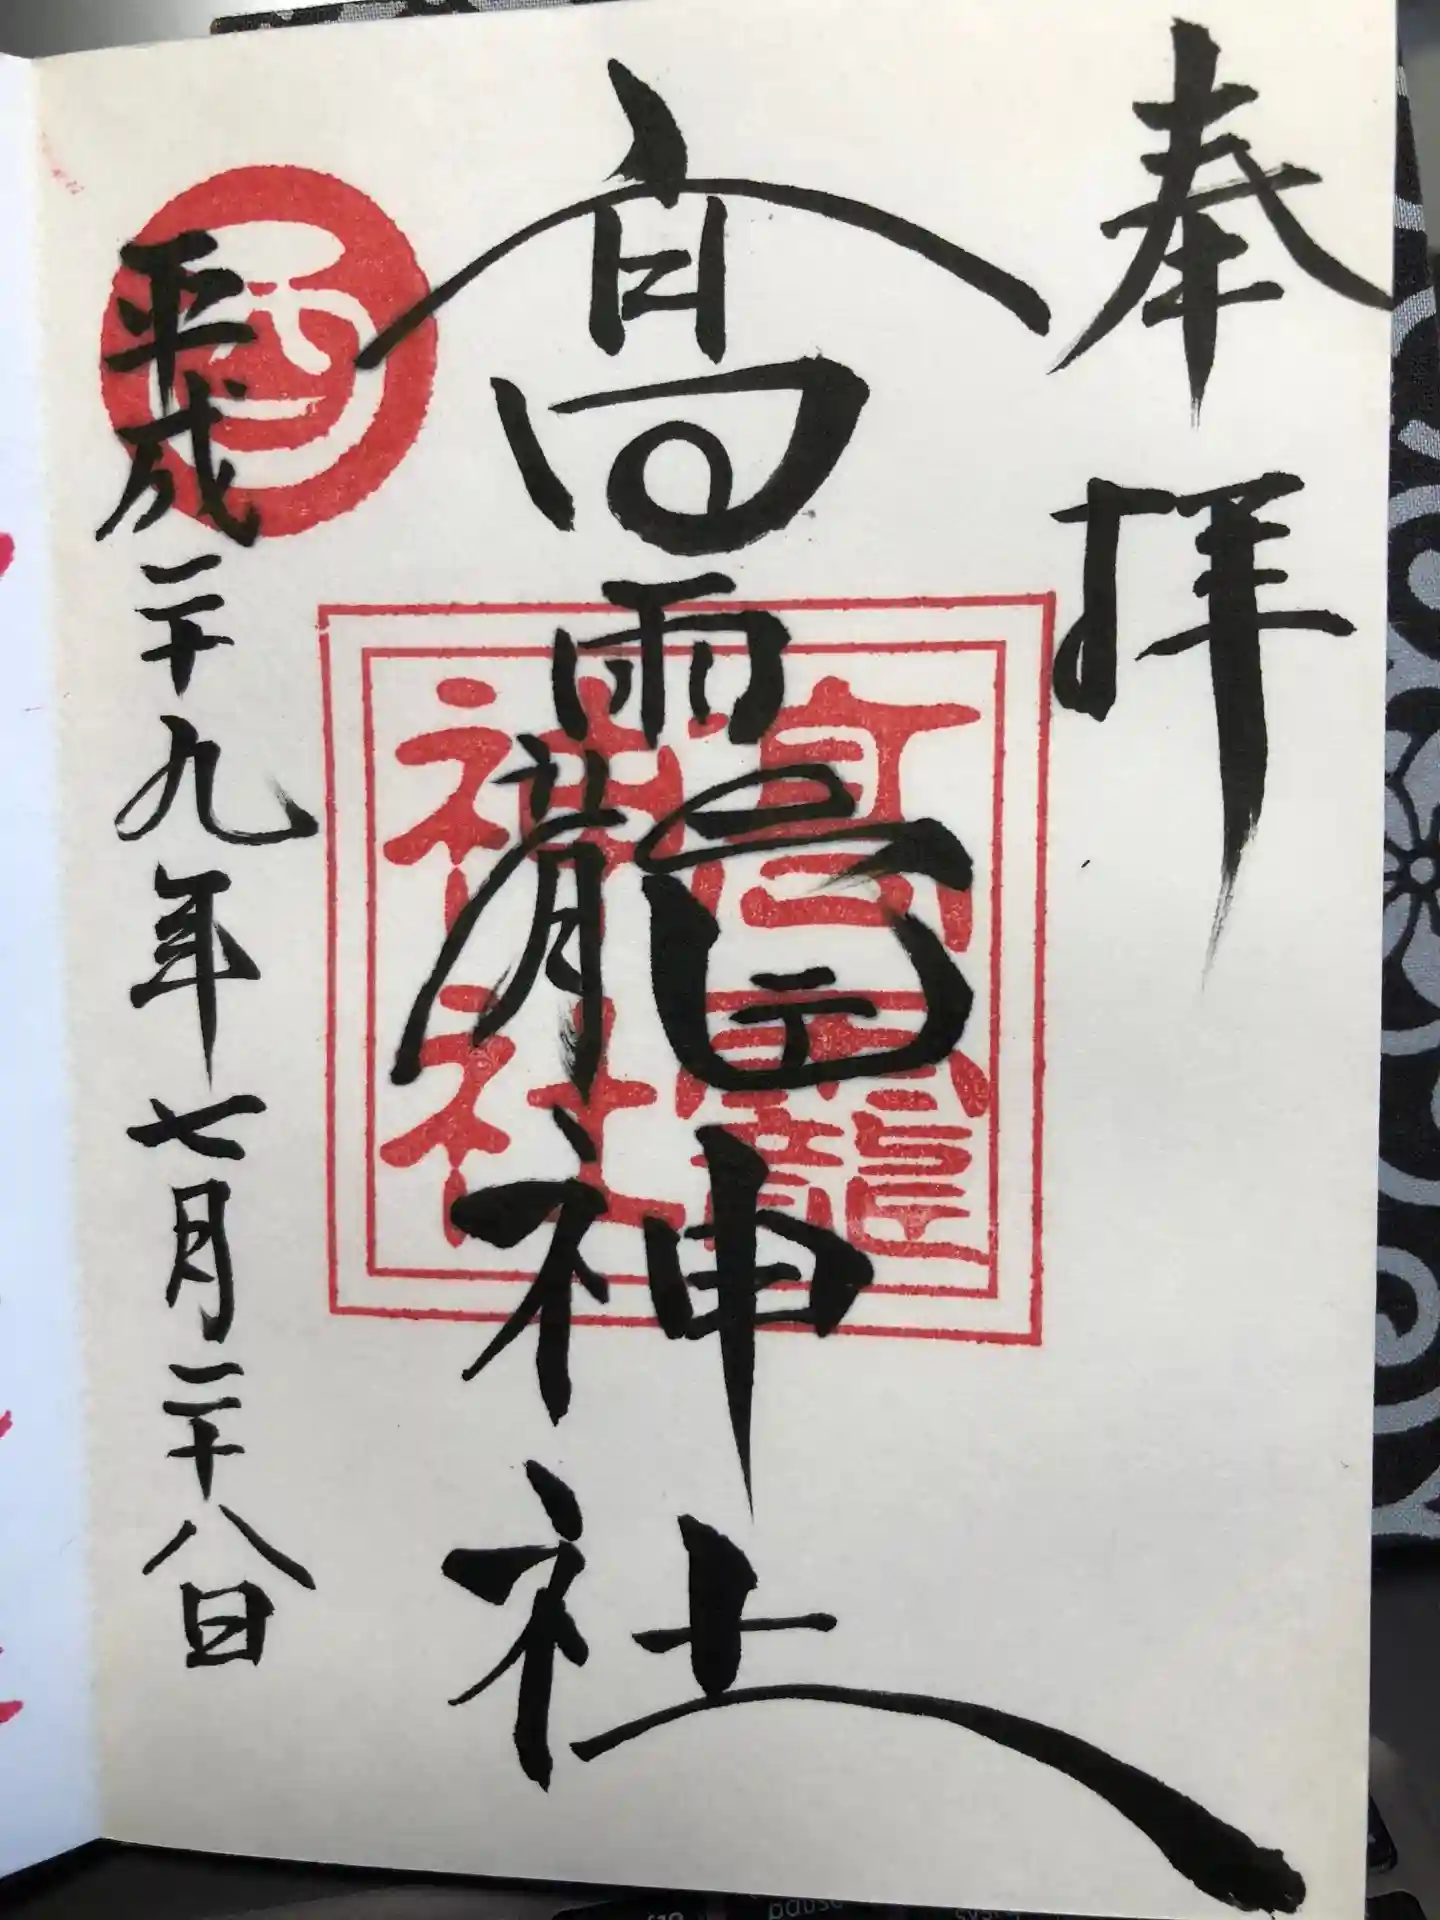 奉拝
高靇神社
高靇
神社
平成二十九年七月二十八日
pause